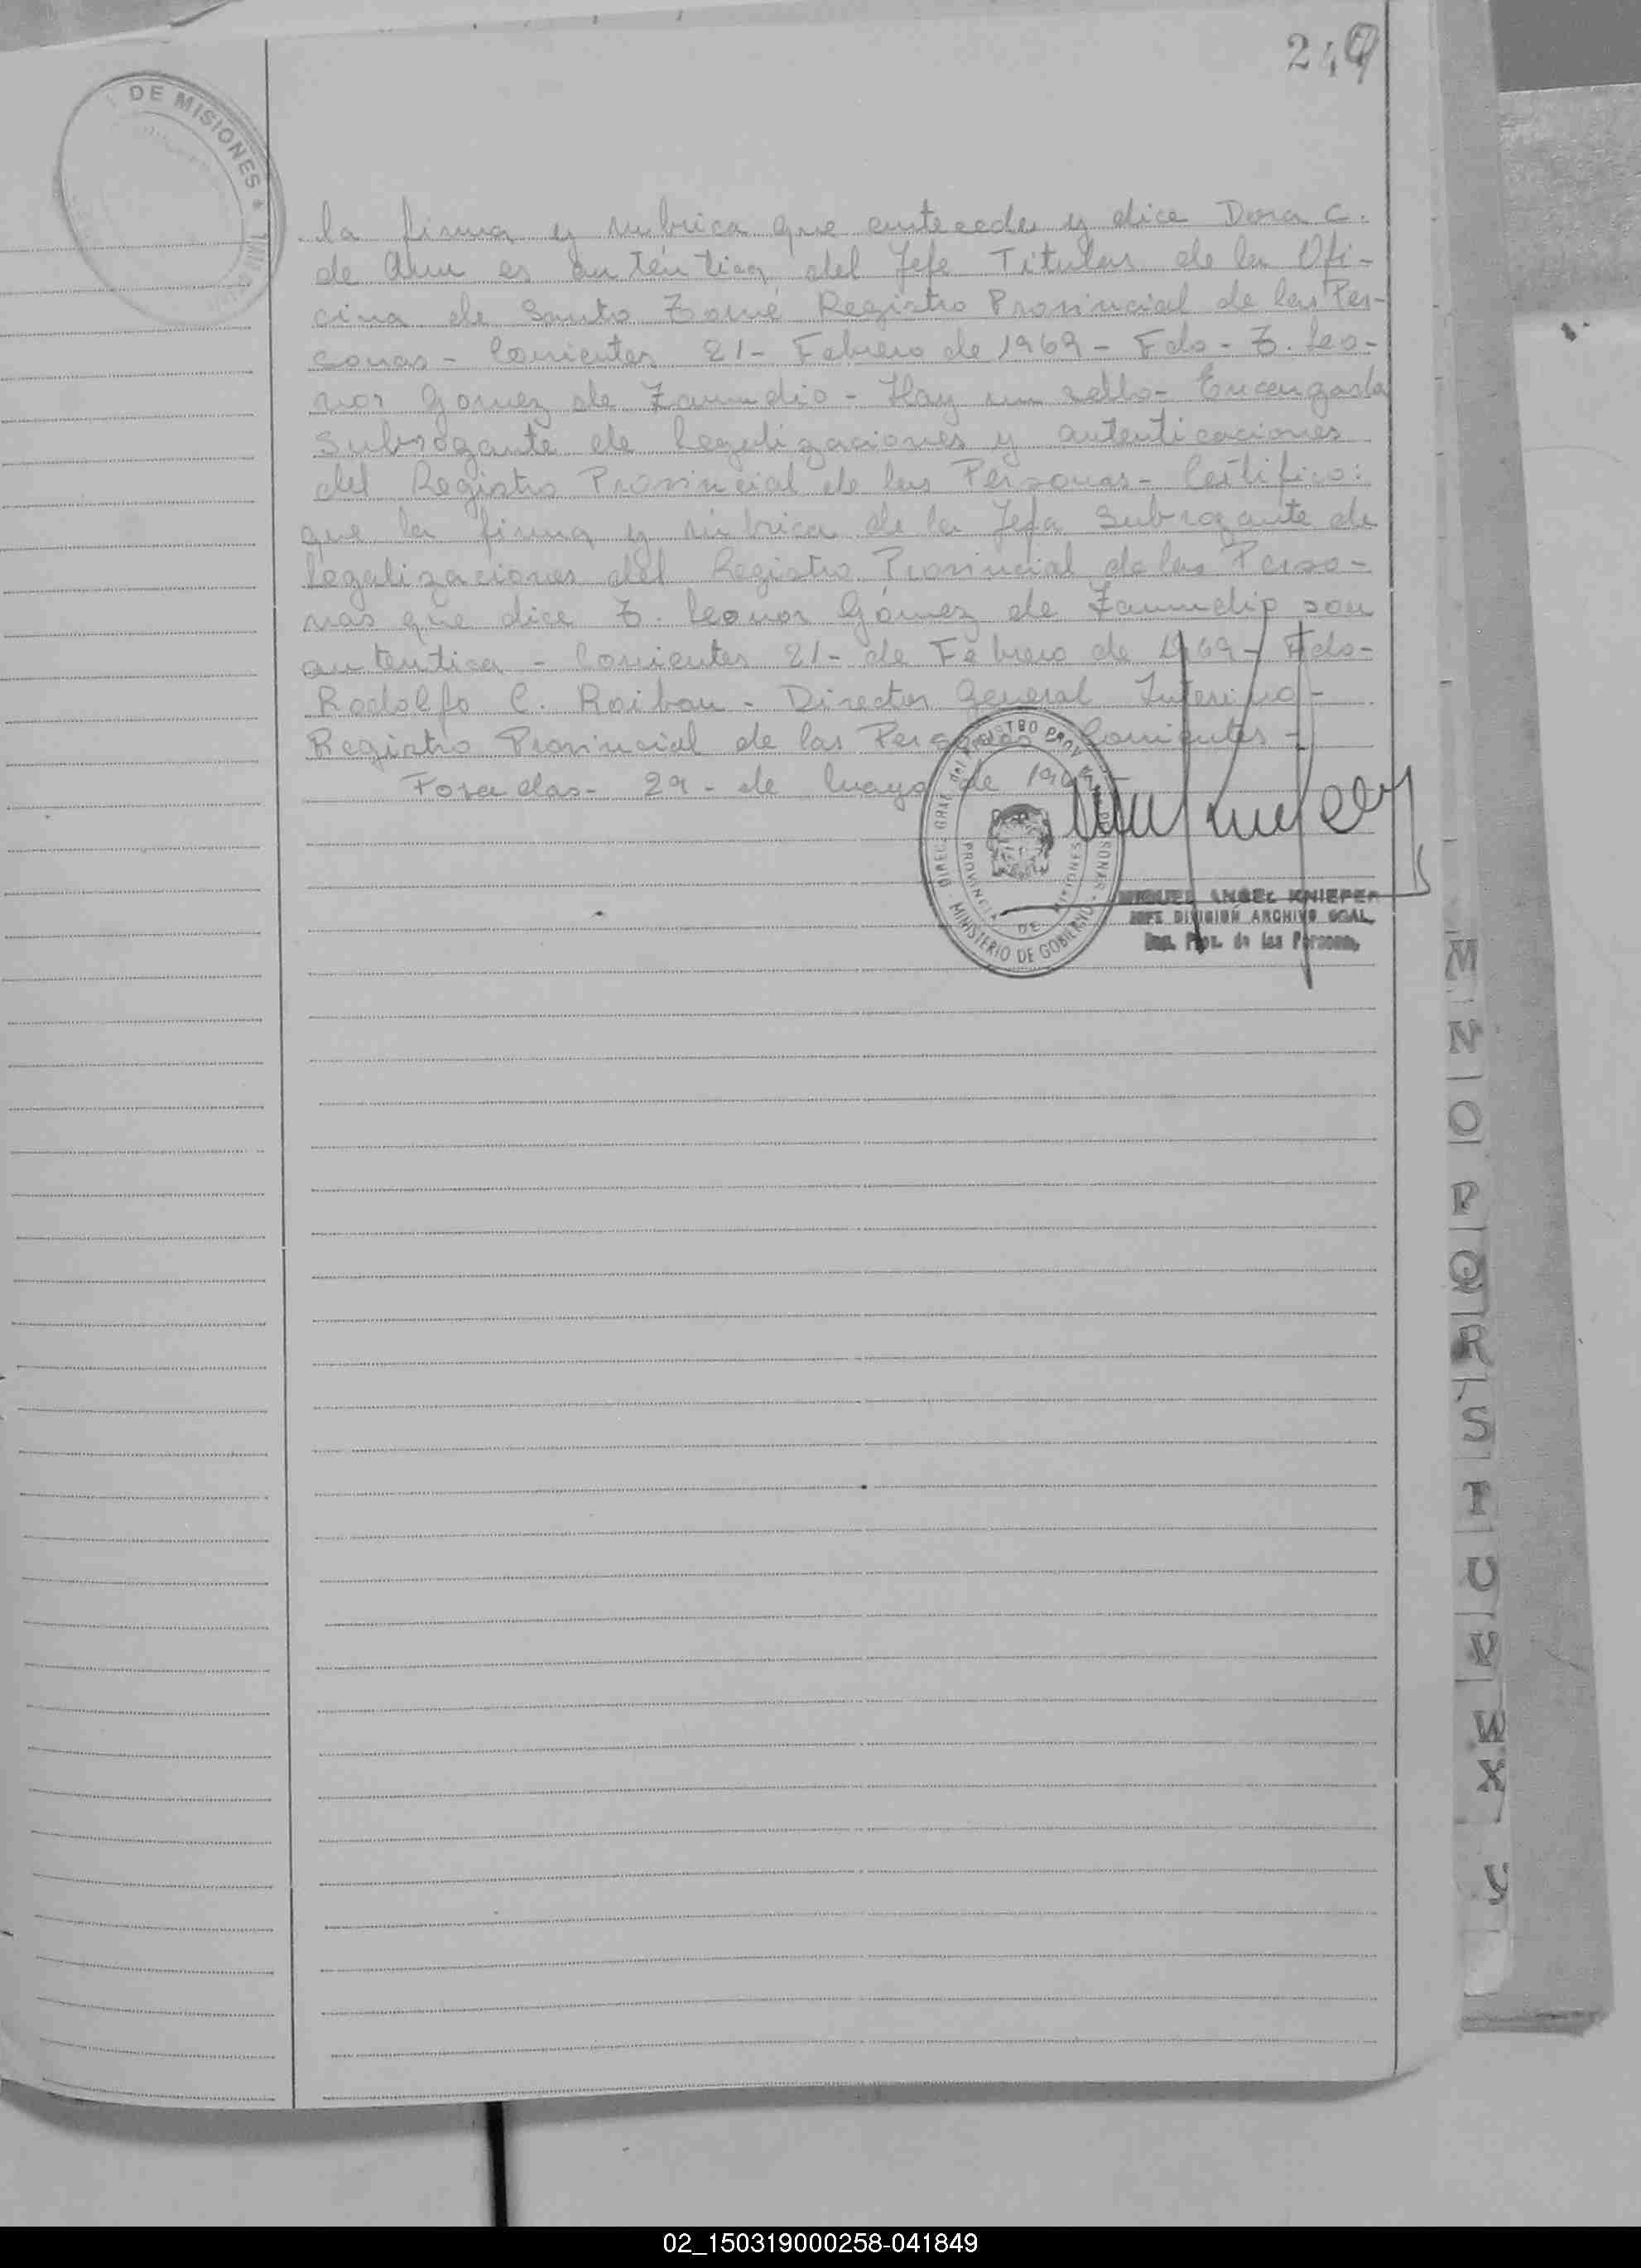 249
DE MISIONES
la firma y rubrica que antecede y dice Dora C.
de es autentica del Jefe Titular de la Ofi-
cina de Santo Tomé Registro Provincial de las Per-
sonas - Corrientes 21 - Febrero de 1969 - Fdo - T. Leo-
nor Gomez de Zamudio - Hay un sello - Encargada
Subrogante de Legalizaciones y autenticaciones
del Registro Provincial de las Personas - Certifico:
que la firma y rúbrica de la Jefa Subrogante de
Legalizaciones del Registro Provincial de las Perso-
nas que dice T. Leonor Gómez de Zamudio son
autentica - Corrientes 21 - de Febrero de 1969 - Fdo -
Rodolfo C. - Director General Interino -
Registro Provincial de las Personas Corrientes -
Posadas - 29 - de mayo de
DIREC. GRAL. del REGISTRO PROV. PERSONAS
PROVINCIA DE MISIONES
MINISTERIO DE GOBIERNO
MIGUEL ANGEL KNIEPER
JEFE DIVISIÓN ARCHIVO GRAL.
Prov. de las Personas
M
N
O
P
Q
R
S
T
U
V
W
X
Y
02_150319000258-041849